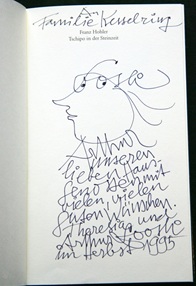 An
Familie Kesselring
Franz Hohler
Tschipo in der Steinzeit
unseren
lieben
mit
vielen vielen
guten Wünschen.
Theresia und
Arthur
im Herbst 1995